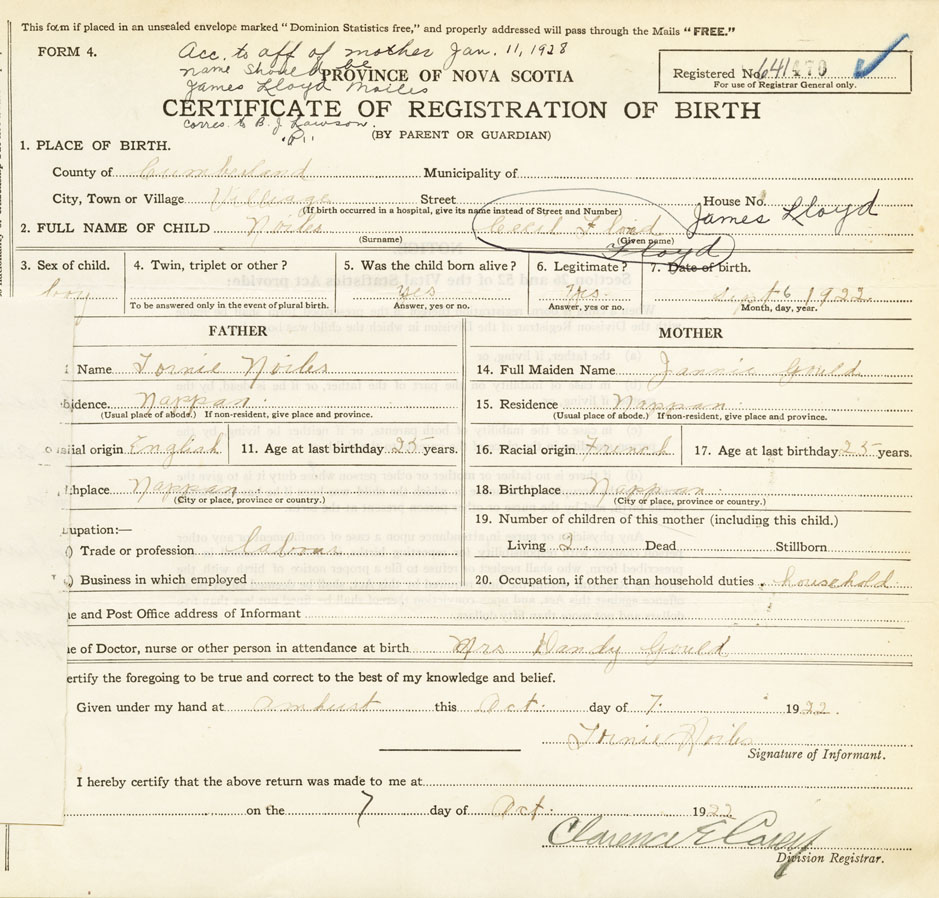 This form if placed in an unsealed envelope marked "Dominion Statistics free," and properly addressed will pass through the Mails "FREE."
FORM 4.
Acc. to aff of mother Jan. 11, 1928
name should be
James Lloyd Noiles
corres. to B. J. Lawson
PROVINCE OF NOVA SCOTIA
Registered No. 641
For use of Registrar General only.
CERTIFICATE OF REGISTRATION OF BIRTH
(BY PARENT OR GUARDIAN)
1. PLACE OF BIRTH.
County of Cumberland Municipality of
City, Town or Village Village Street House No.
(If birth occurred in a hospital, give its name instead of Street and Number)
James Lloyd
2. FULL NAME OF CHILD Noiles Cecil Floid
(Surname) (Given name)
Floyd
3. Sex of child. 4. Twin, triplet or other? 5. Was the child born alive? 6. Legitimate? 7. Date of birth.
boy yes yes. Sept 6 1922
To be answered only in the event of plural birth. Answer, yes or no. Answer, yes or no. Month, day, year.
FATHER MOTHER
Name Tornie Noiles 14. Full Maiden Name Jannie Gould
idence Nappan 15. Residence Nappan
(Usual place of abode.) If non-resident, give place and province. (Usual place of abode.) If non-resident, give place and province.
ial origin English 11. Age at last birthday 25 years. 16. Racial origin French 17. Age at last birthday 25 years.
hplace Nappan 18. Birthplace Nappan
(City or place, province or country.) (City or place, province or country.)
19. Number of children of this mother (including this child.)
upation:—
) Trade or profession Labour Living 2. Dead Stillborn
) Business in which employed 20. Occupation, if other than household duties household
e and Post Office address of Informant
e of Doctor, nurse or other person in attendance at birth Mrs Dandy Gould
ertify the foregoing to be true and correct to the best of my knowledge and belief.
Given under my hand at Amhust this Oct. day of 7. 1922.
Tornie Noiles
Signature of Informant.
I hereby certify that the above return was made to me at
on the 7 day of Oct. 1922
Clarence E Casey
Division Registrar.